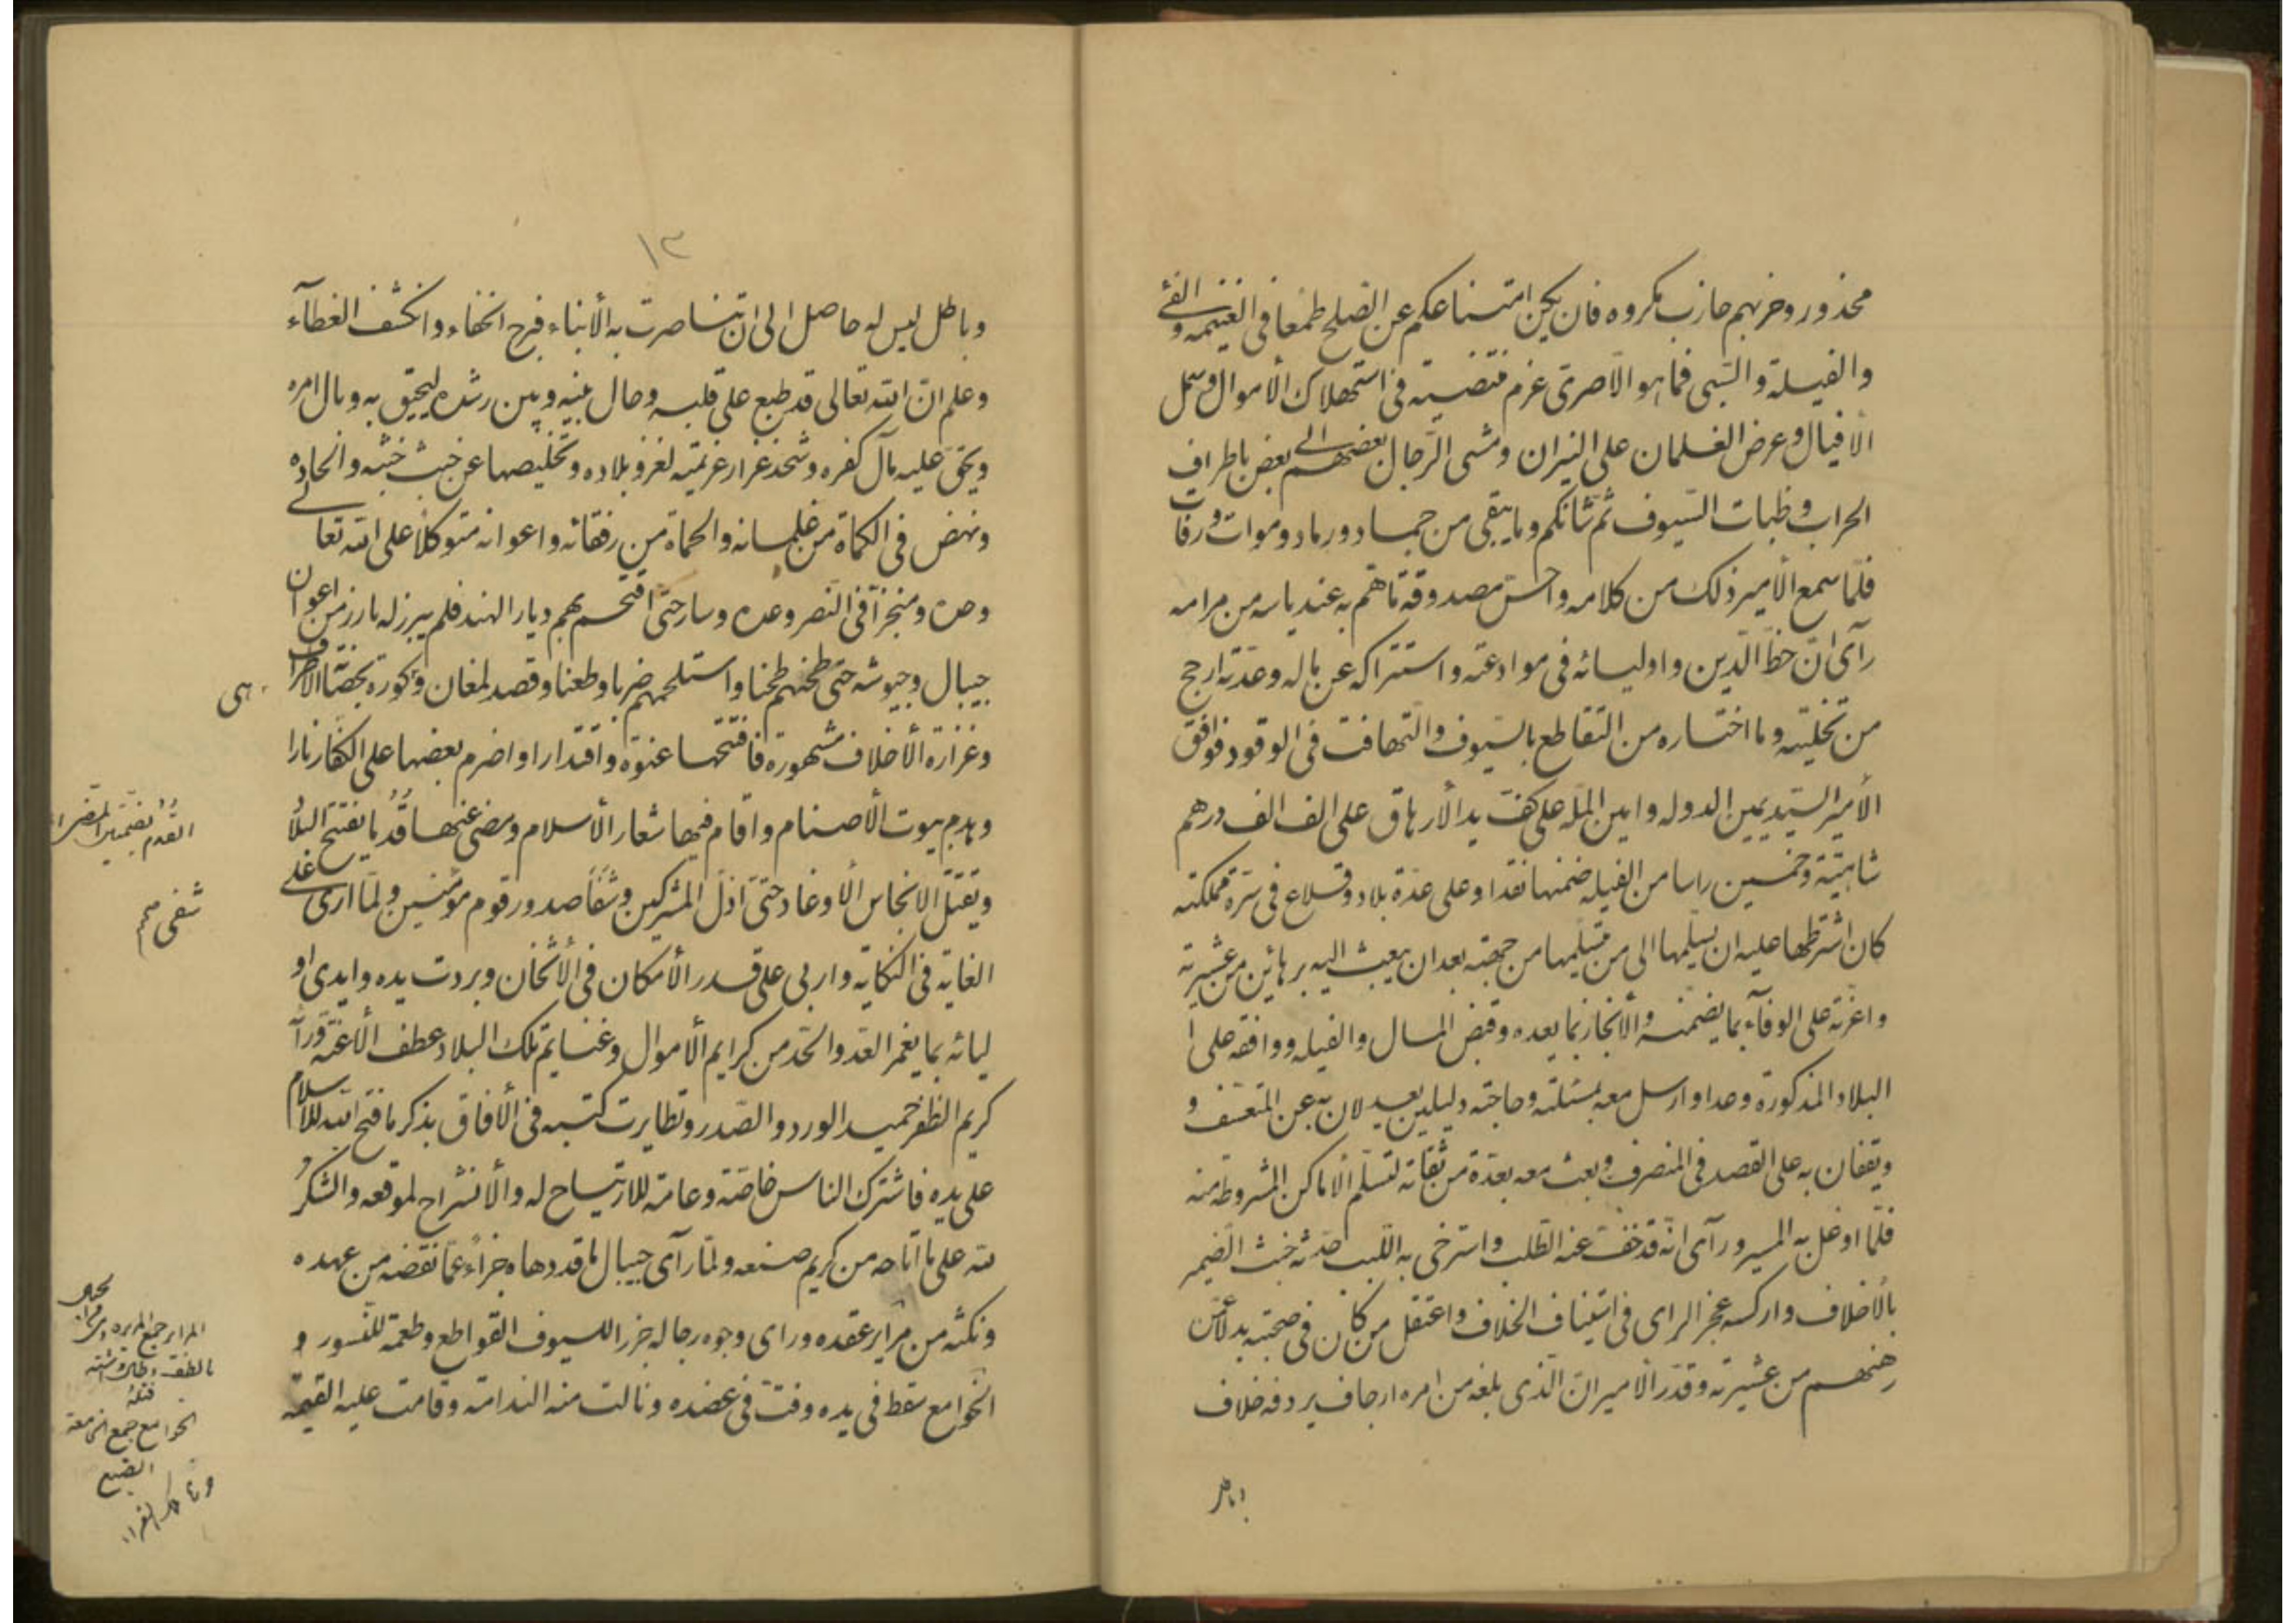 محذور وخربهم حازب مكروه فان يكن امتناعكم عن الصلح طمعا فى الغنيمه والفئ
والفيلة والسبى فما هو الا صرى عزم فتضيته فى استهلاك الأموال وسمل
الافيال وعرض الغلمان على النيران ومشى الرجال بعضهم الى بعض باطراف
الحراب وظبات السيوف ثم شانكم وما يبقى من جماد ورماد وموات ورفات
فلما سمع الأمير ذلك من كلامه واحس مصدوقة ما هم به عند ياسه من مرامه
رآى ان حظ الدين واوليائه فى موادعته واستتراكه عن ماله وعدته ارجح
من تخليته وما اختاره من التقاطع بالسيوف والتهافت فى الوقود فوافق
الأمير السيد يمين الدوله وامين المله على كف يد الارهاق على الف الف درهم
شاهيّة وخمسين راسا من الفيله ضمنها نقدا وعلى عدة بلاد وقلاع فى سرة مملكته
كان اشترطها عليه ان يسلمها الى من يتسلمها من جهته بعد ان يبعث اليه برهائن من عشيرته
واعزته على الوفآء بما يضمنه والانجاز بما يعده وقبض المال والفيله ووافقه على
البلاد المذكورة وعدا وارسل معه بمسئلته وحاجته دليلين يعدلان به عن المتعسف و
ويقفان به على القصد فى المنصرف وبعث معه بعدة من ثقاته لتسلم الاماكن المشروطه منه
فلما اوغل به المسير ورآى انه قد خف عنه الطلب واسترخى به اللبب حدثه خبث الضمير
بالاخلاف واركسه عجز الراى فى استيناف الخلاف واعتقل من كان فى صحبته بدلا عمن
رهنهم من عشيرته وقدر الامير ان الذى بلغه من امره ارجاف يردفه خلاف
وباطل
١٣
وباطل ليس له حاصل الى ان تناصرت به الأنباء فبرح الخفاء وانكشف الغطآء
وعلم ان الله تعالى قد طبع على قلبه وحال بينه وبين رشده ليحيق به وبال امره
ويحق عليه مآل كفره وشحذ غرار عزيمته لغزو بلاده وتخليصها عن خبث خبثه والحاده
ونهض فى الكماة من غلمانه والحماة من رفقائه واعوانه متوكلا على الله تعالى
وحده ومنجزا فى النصر وعده وسار حتى اقتحم بهم ديار الهند فلم يبرز له بارز من اعوان
جيبال وجيوشه حتى طحنهم طحنا واستلحمهم ضربا وطعنا وقصد لمغان وكورة بحصانة الاطراف
وغزارة الأخلاف مشهورة فافتتحها عنوة واقتدارا واضرم بعضها على الكفار نارا
وهدم بيوت الأصنام واقام فيها شعار الأسلام ومضى عنها قدما يفتتح البلاد
ويقتل الانجاس الأوغاد حتى اذل المشركين وشفا صدور قوم مؤمنين ولما ارى على
الغاية فى النكاية واربى على قدر الأمكان فى الأثخان وبردت يده وايدى او
ليائه بما يغمر العد والحد من كرايم الأموال وغنايم تلك البلاد عطف الأعنة ورآ
كريم الظفر حميد الورد والصدر وتطايرت كتبه فى الأفاق بذكر ما فتح الله للاسلام
على يده فاشترك الناس خاصة وعامة للارتياح له والأنشراح لموقعه والشكر
لله على ما اتاحه من كريم صنعه ولما رآى جيبال ما قد دهاه جزاء عما نقضه من عهده
ونكثه من مراير عقده وراى وجوه رجاله جزر السيوف القواطع وطعمة للنسور و
الخوامع سقط فى يده وفت فى عضده ونالت منه الندامة وقامت عليه القيمة
هى
القدم بضمتين المضى
شفى صح
المراير جمع المريره
الخوامع جمع الخامعة
الضبع